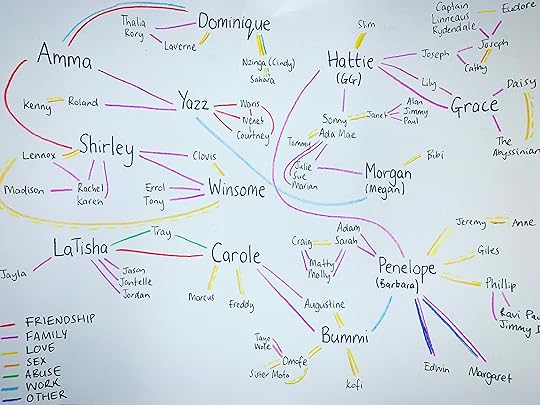 Dominique
Thalia
Rory
Laverne
Nzinga (Cindy)
Sahara
Amma
Kenny
Roland
Yazz
Waris
Nenet
Courtney
Slim
Hattie
(GG)
Captain
Linneaus
Rydendale
Eudore
Joseph
Joseph
Cathy
Lily
Grace
Daisy
The
Abyssinian
Sonny
Ada Mae
Janet
Alan
Jimmy
Paul
Tommy
Julie
Sue
Marian
Bibi
Morgan
(Megan)
Shirley
Lennox
Madison
Rachel
Karen
Clovis
Winsome
Errol
Tony
LaTisha
Tray
Carole
Jayla
Jason
Jantelle
Jordan
Marcus
Freddy
Craig
Adam
Sarah
Matty
Molly
Penelope
(Barbara)
Jeremy
Anne
Giles
Phillip
Ravi Pau
Jimmy D
Edwin
Margaret
Augustine
Bummi
Tayo
Wole
Omofe
Sister Moto
Kofi
FRIENDSHIP
FAMILY
LOVE
SEX
ABUSE
WORK
OTHER